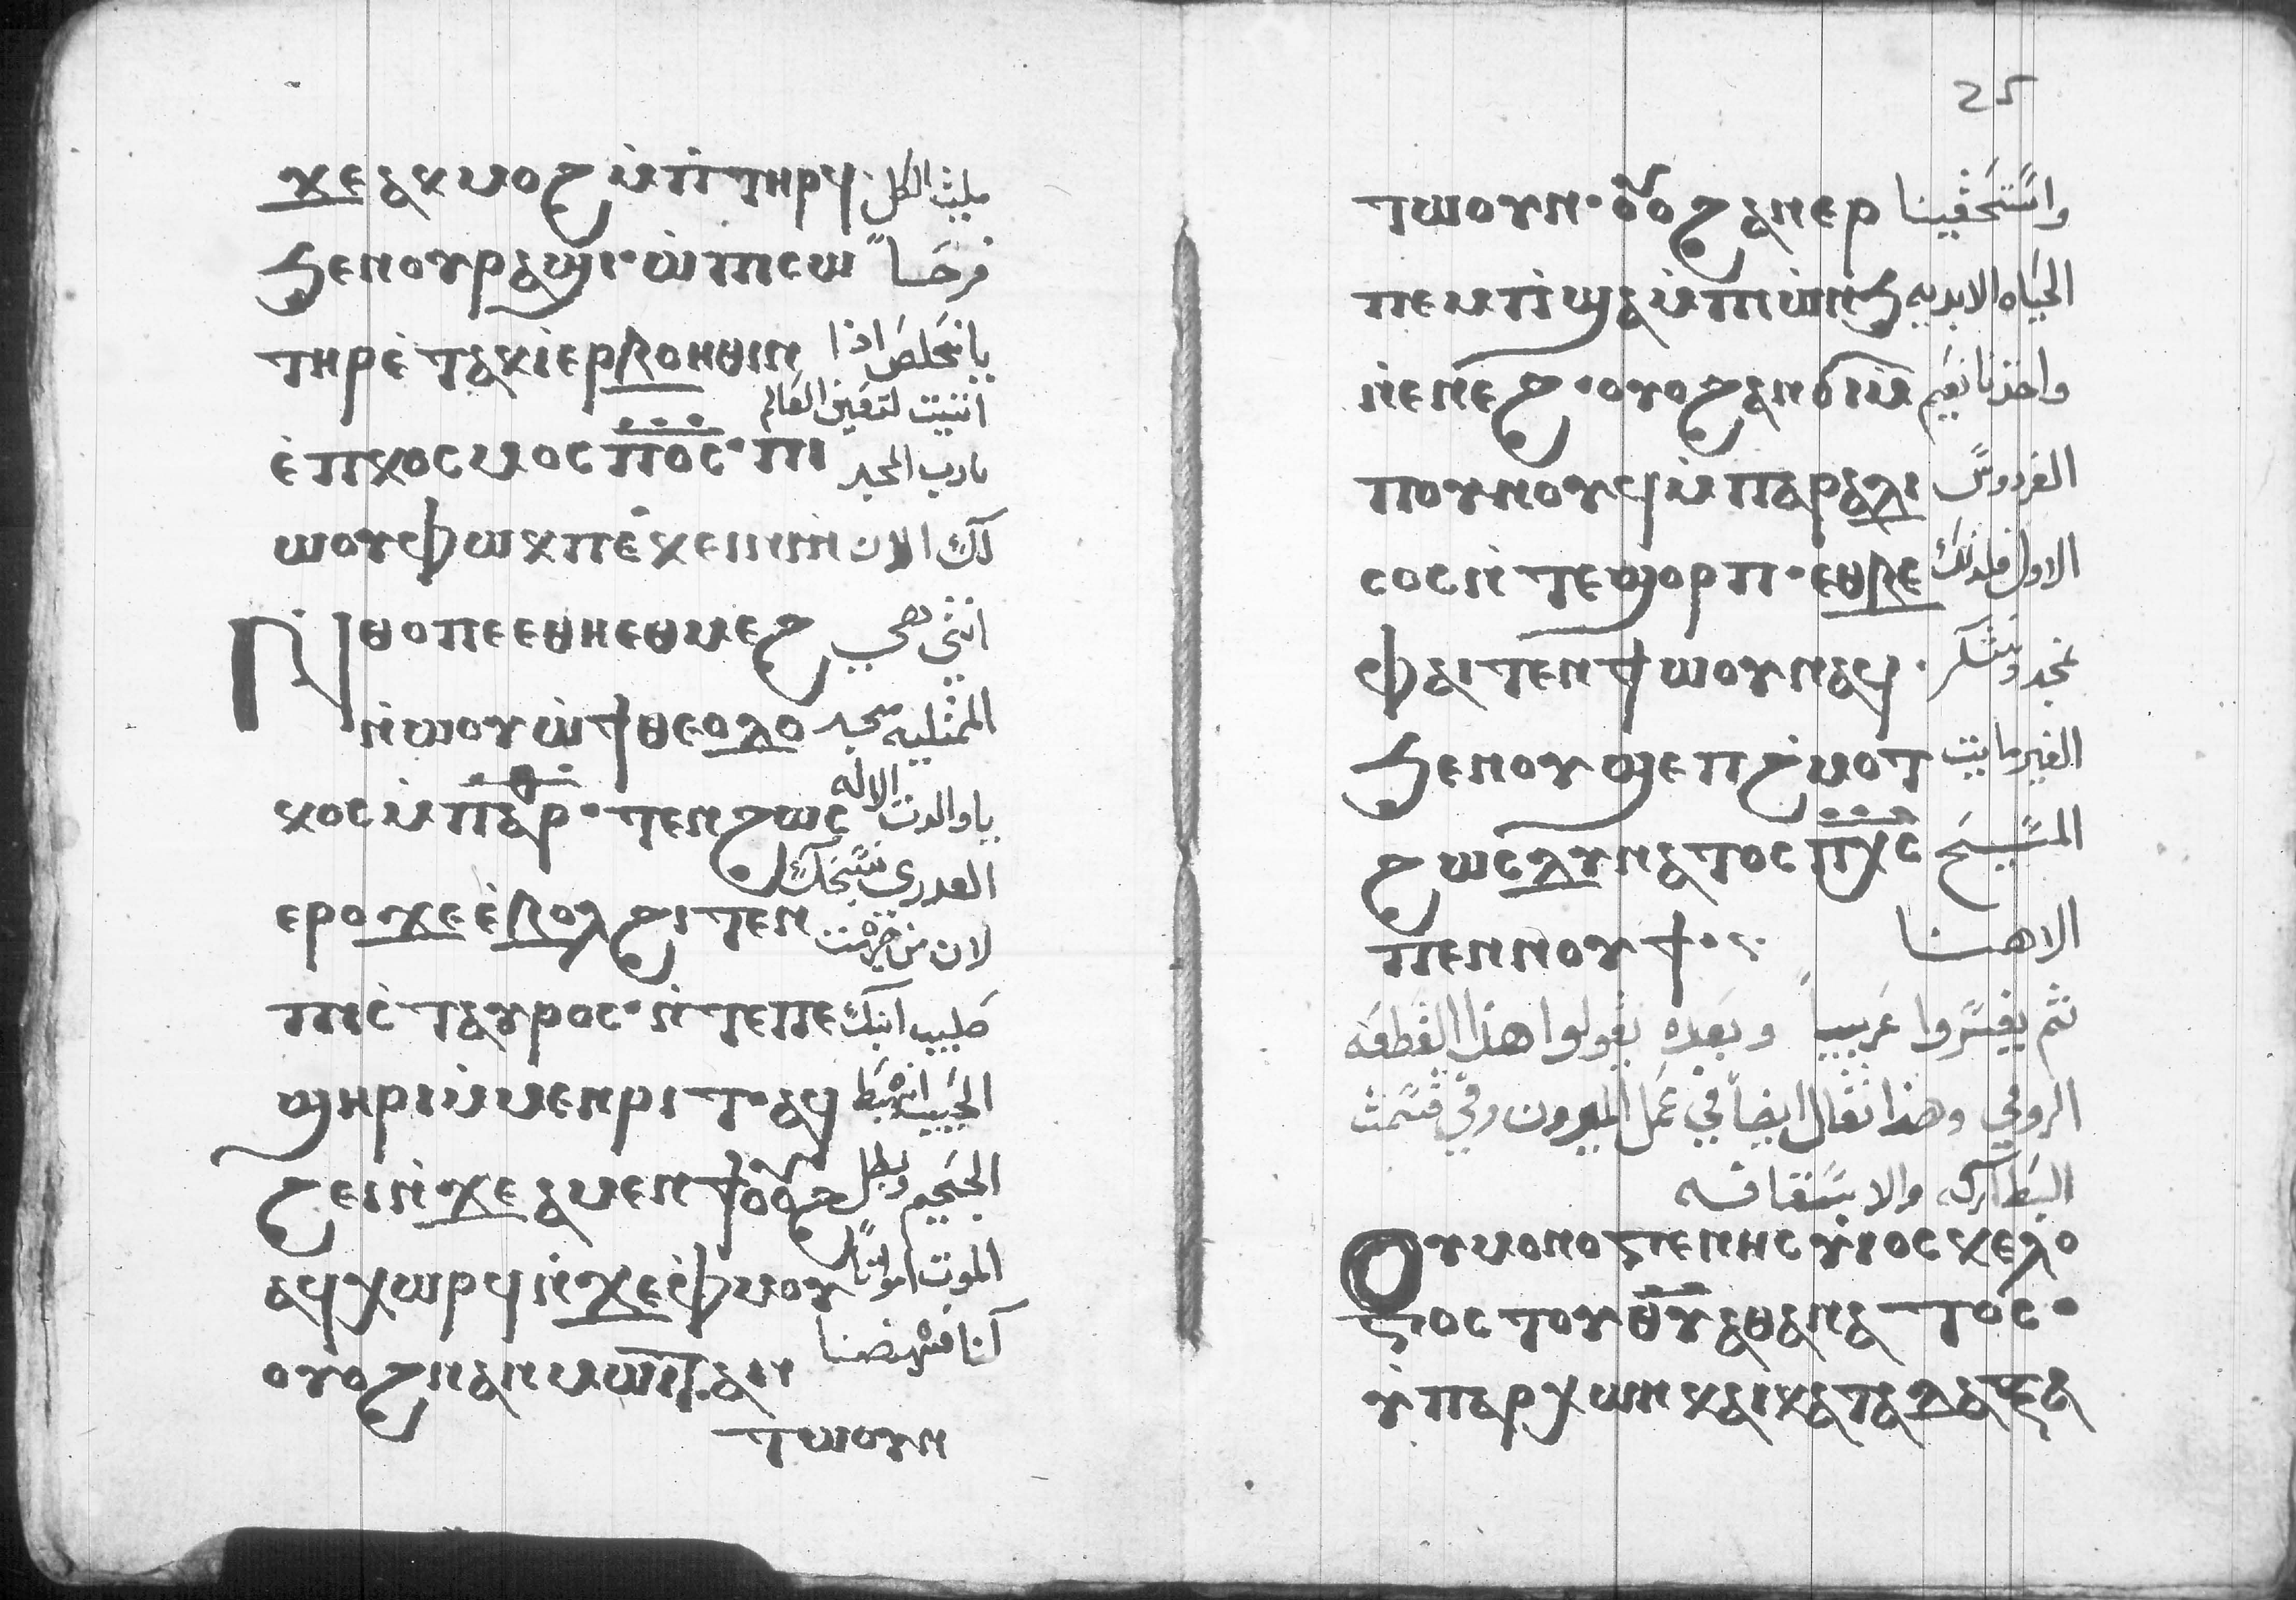 ϫⲉⲁⲕⲙⲟϩ ⲙ̀ⲡ̀ⲧⲏⲣϥ ملیت الكل
ϧⲉⲛⲟⲩⲣⲁϣⲓ· ⲱ̀ⲡⲓⲥⲱ فرحاً
ⲧⲏⲣⲉ̀ⲧⲁⲕⲓ̀ⲉⲣⲃⲟⲏⲑⲓⲛ يا مخلص اذا
اتيت لتعين العالم
ⲉ̀ⲡⲕⲟⲥⲙⲟⲥ ⲡⲟ̅ⲥ̅· ⲡⲓ يارب المجد
ⲱⲟⲩ ⲫⲱⲕⲡⲉ ⲕⲉⲛⲛⲓⲛ لك الان
ⲛ̀ⲑⲟⲡⲉ ⲉⲑⲏⲉⲑⲙⲉϩ انتي هي
ⲛ̀ⲱⲟⲩ ⲱ̀ϯⲑⲉⲟⲇⲟ الممتليه مجد
ⲕⲟⲥ ⲙ̀ⲡⲁⲣ· ⲧⲉⲛϩⲱⲥ يا والدت الاله
العدرى نسبحك
ⲉⲣⲟ ϫⲉ ⲉ̀ⲃⲟⲗ ϩⲓⲧⲉⲛ لان من جهت
ⲡⲓⲥ̀ⲧⲁⲩⲣⲟⲥ· ⲛ̀ⲧⲉⲡⲉ صليب ابنك
ϣⲏⲣⲓ ⲙ̀ⲙⲉⲛⲣⲓⲧ· ⲁϥ الحبيب انهبط
ϩⲉⲓ ⲛ̀ϫⲉ ⲁⲙⲉⲛϯ ⲟⲩⲟϩ الجحيم وبطل
ⲁϥⲕⲱⲣϥ ⲛ̀ϫⲉ ⲫ̀ⲙⲟⲩ الموت امواتاً
ⲟⲩⲟϩ ⲛⲁⲛⲙⲱⲟⲩⲧ ⲁⲛ كنا فنهضنا
ⲧⲱⲟⲩⲛ
25
ⲧⲱⲟⲩⲛ· ⲟⲩⲟϩ ⲁⲛⲉⲣ واستحقينا
ⲡⲉⲙⲡ̀ϣⲁ ⲙ̀ⲡⲓⲱ̀ⲛϧ الحياه الابديه
ⲛ̀ⲉⲛⲉϩ· ⲟⲩⲟϩ ⲁⲛϭⲓ ⲙ̀ واخذنا نعيم
ⲡⲟⲩⲛⲟⲩϥ ⲙ̀ⲡⲁⲣⲁⲇⲓ الفردوس
ⲥⲟⲥ ⲛ̀ⲧⲉ ϣⲟⲣⲡ· ⲉⲑⲃⲉ الاول فلذلك
ⲫⲁⲓ ⲧⲉⲛϯⲱⲟⲩ ⲛⲁϥ· نمجد ونشكر
ϧⲉⲛⲟⲩϣⲉⲡϩ̀ⲙⲟⲧ الغير مايت
ϩⲱⲥ ⲇⲩⲛⲁⲧⲟⲥ ⲡⲭ̅ⲥ̅ المسيح
ⲡⲉⲛⲛⲟⲩϯ·: الاهنا
ثم يفسروا عربياً وبعده يقولوا هذا القطعه
الرومي وهذا تقال ايضاً في عمل الميرون وفي قسمت
البطاركه والاساقفه
Ⲟⲩⲙⲟⲛⲟⲅⲉⲛⲏⲥ ⲩ̀ⲓⲟⲥ ⲕⲉ ⲗⲟ
ⲅⲟⲥ ⲧⲟⲩ ⲑ̅ⲩ̅ ⲁⲑⲁⲛⲁⲧⲟⲥ·
ⲩ̀ⲡⲁⲣⲭⲱⲛ ⲕⲁⲓ ⲕⲁⲧⲁⲇⲁⲝⲁ